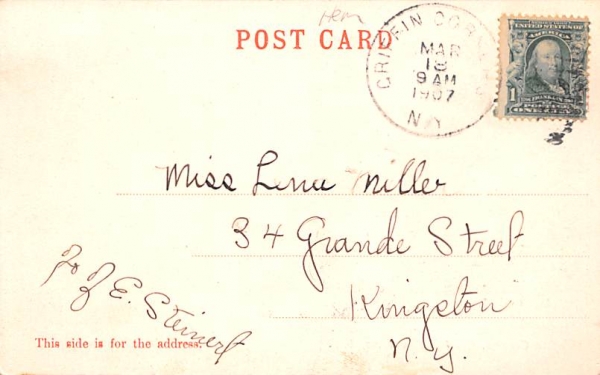 Hen
POST CARD
GRIFFIN CORNERS
MAR
18
9 AM
1907
N.Y.
UNITED STATES OF
AMERICA
1 1
ONE CENT
Miss Lena Miller
34 Grande Street
Kingston
N. Y.
E. Steinert
This side is for the address.